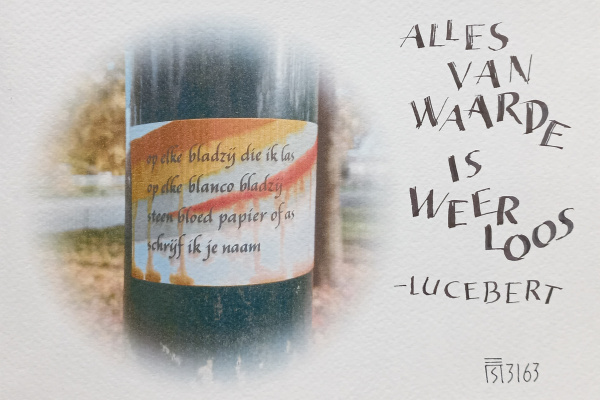 op elke bladzij die ik las
op elke blanco bladzij
steen bloed papier of as
schrijf ik je naam
ALLES
VAN
WAARDE
IS
WEER
LOOS
-LUCEBERT
3163